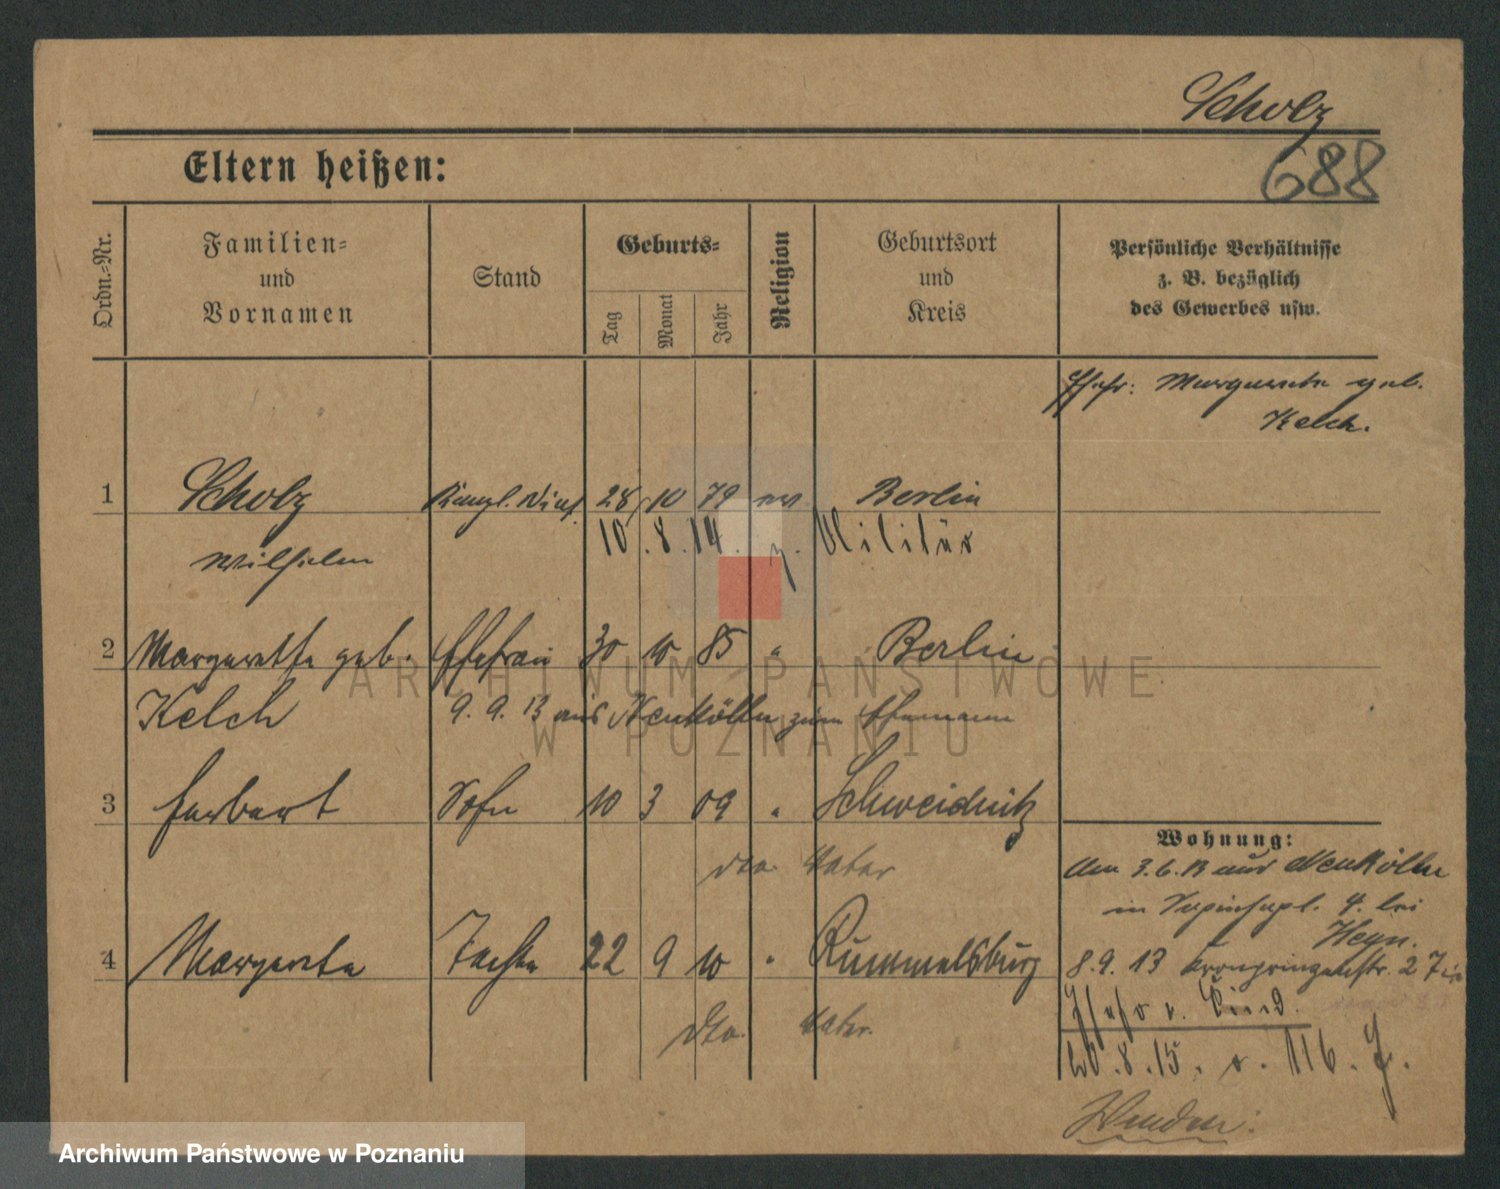 Scholz
688
Eltern heißen:
Ordn.-Nr.
Familien=
und
Vornamen
Stand
Geburts=
Tag
Monat
Jahr
Religion
Geburtsort
und
Kreis
Persönliche Verhältnisse
z. B. bezüglich
des Gewerbes usw.
Ehefr: Margarete geb.
Kelch.
1 Scholz 28 10 79 ev. Berlin
10.8.14. z. Militär
Wilhelm
2 Margarethe geb. Ehefrau 30 10 85 " Berlin
Kelch 9. 9. 13 aus Neukölln zum Ehemann
3 Herbert Sohn 10 3 09 " Schweidnitz
Wohnung:
dto. Vater
Am 3.6.13 aus Neukölln
in 4. bei
Heyn.
4 Margarete Tochter 22 9 10 " Rummelsburg
8.9.13 Kronprinzenstr. 27
Ehefr u. Kind.
dto. Vater.
20.8.15. 116.
Wenden.
ARCHIWUM PAŃSTWOWE
W POZNANIU
Archiwum Państwowe w Poznaniu